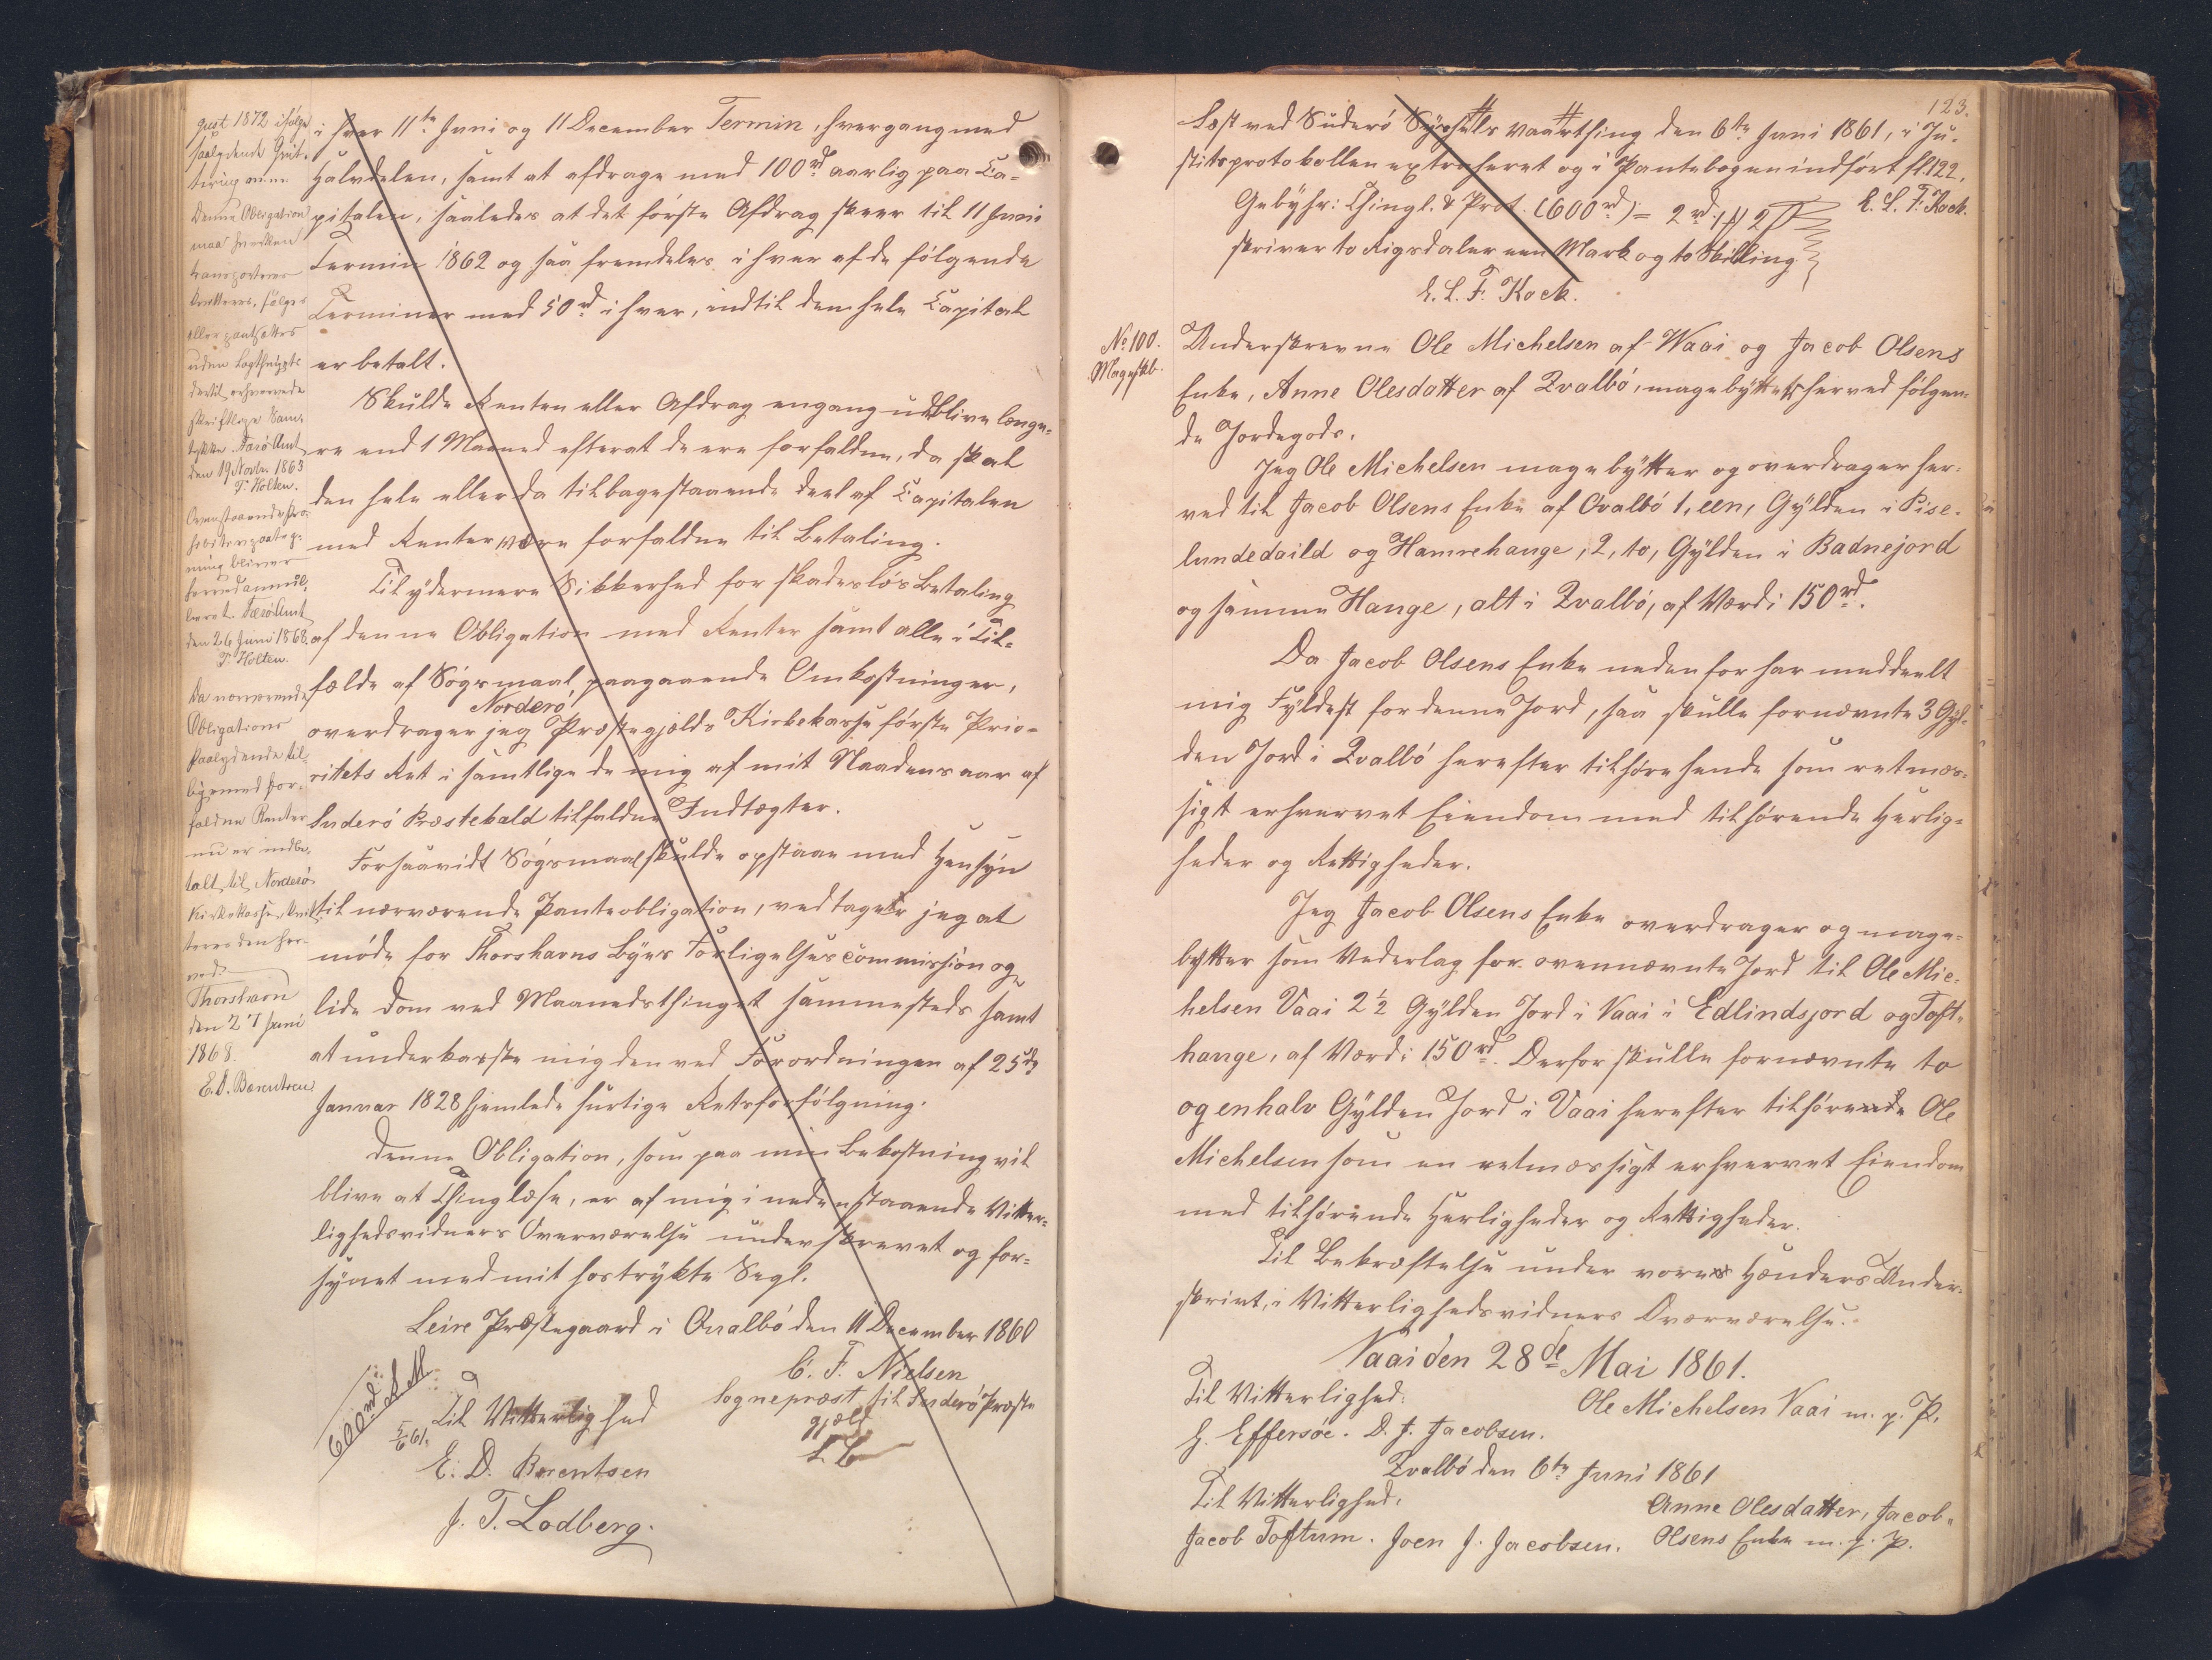 gust 1872 ifølge
paalydende Qvit-
tering
Denne Obligation
maa hverken
transporteres
qvitteres, sælges
eller pantsættes
uden Lovthingets
dertil erhvervede
skriftlige Sam-
tykke. Færø Amt
den 19 Novbr. 1863
P. Holten.
Ovenstaaende Pro-
hibitivpaateg-
ning bliver
herved annul-
leret. Færø Amt
den 26 Juni 1868.
P. Holten.
Da nærværende
Obligations
Paalydende til-
ligemed for-
faldne Renter
nu er indbe-
talt til Norderø
Kirkekasse, qvit-
teres den her-
ved.
Thorshavn
den 27 Juni
1868.
E. D. Bærentsen
i hver 11te Juni og 11 December Termin, hvergang med
Halvdelen, samt at afdrage med 100rd aarlig paa Ca-
pitalen, saaledes at det første Afdrag skeer til 11 Juni
Termin 1862 og saa fremdeles i hver af de følgende
Terminer med 50rd i hver, indtil den hele Capital
er betalt.
Skulde Renten eller Afdrag engang udeblive længe-
re end 1 Maaned efterat de ere forfaldne, da skal
den hele eller da tilbagestaaende Deel af Capitalen
med Renter være forfalden til Betaling.
Til ydermere Sikkerhed for skadesløs Betaling
af denne Obligation med Renter samt alle i Til-
fælde af Søgsmaal paagaaende Omkostninger,
Norderø
overdrager jeg Præstegjælds Kirkekasse første Prio-
ritets Ret i samtlige de mig af mit Naadensaar af
Suderø Præstekald tilfaldne Indtægter.
Forsaavidt Søgsmaal skulde opstaae med Hensyn
til nærværende Panteobligation, vedtager jeg at
møde for Thorshavns Byes Forligelsescommission og
lide Dom ved Maanedsthinget sammesteds samt
at underkaste mig den ved Forordningen af 25de
Januar 1828 hjemlede hurtige Retsforfølgning.
Denne Obligation, som paa min Bekostning vil
blive at Thinglæse, er af mig i nedenstaaende Vitter-
lighedsvidners Overværelse underskrevet og for-
synet med mit hostrykte Segl.
Leire Præstegaard i Qvalbø den 11 December 1860
C. F. Nielsen
Sognepræst til Suderø Præste
gjæld
L. S.
600rd S. M.
5/6 61.
Til Vitterlighed
E. D. Bærentsen
J. T. Lodberg.
123.
Læst ved Suderø Syssels Vaarthing den 6te Juni 1861, i Ju-
stitsprotokollen extraheret og i Pantebogen indført fl. 122.
E. L. F. Kock.
Gebyhr: Thingl. & Prot. (600rd) = 2rd 1 2
skriver to Rigsdaler een Mark og to Skilling
E. L. F. Kock.
No 100.
Mageskb.
Underskrevne Ole Michelsen af Waai og Jacob Olsens
Enke, Anne Olesdatter af Qvalbø, magebytte herved følgen-
de Jordegods.
Jeg Ole Michelsen magebytter og overdrager her-
ved til Jacob Olsens Enke af Qvalbø 1, een, Gylden i Pise-
lundedaild og Hamrehauge, 2, to, Gylden i Badnejord
og samme Hauge, alt i Qvalbø, af Værdi 150rd.
Da Jacob Olsens Enke nedenfor har meddeelt
mig Fyldest for denne Jord, saa skulle fornævnte 3 Gyl-
den Jord i Qvalbø herefter tilhøre hende som retmæs-
sigt erhvervet Eiendom med tilhørende Herlig-
heder og Rettigheder.
Jeg Jacob Olsens Enke overdrager og mage-
bytter som Vederlag for ovennævnte Jord til Ole Mic-
helsen Vaai 2½ Gylden Jord i Vaai i Edlindsjord og Toft-
hauge, af Værdi 150rd. Derfor skulle fornævnte to
og en halv Gylden Jord i Vaai herefter tilhørende Ole
Michelsen som en retmæssigt erhvervet Eiendom
med tilhørende Herligheder og Rettigheder.
Til Bekræftelse under vores Hænders Under-
skrivt, i Vitterlighedsvidners Overværelse.
Vaai den 28de Mai 1861.
Til Vitterlighed:
Ole Michelsen Vaai m. p. P.
G. Effersøe. D. J. Jacobsen.
Qvalbø den 6te Juni 1861
Til Vitterlighed:
Anne Olesdatter, Jacob
Jacob Toftum. Joen J. Jacobsen.
Olsens Enke m. f. P.